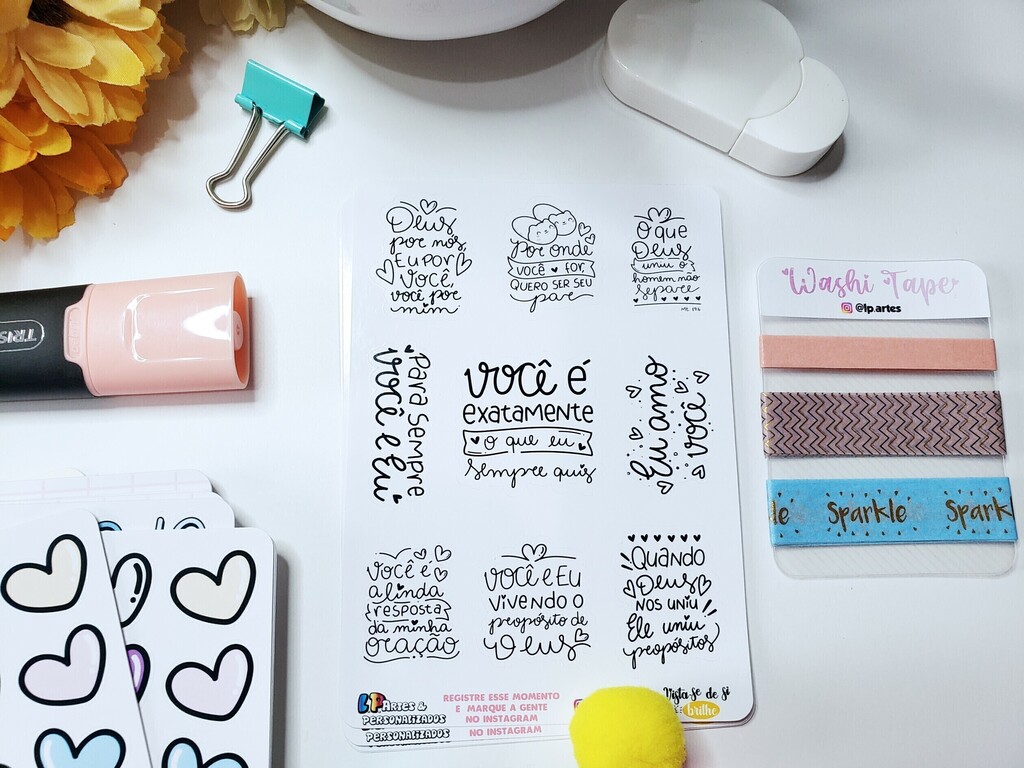 Deus
por nós,
Eu por
você,
você por
mim
Por onde
você for,
quero ser seu
par
O que
Deus
uniu o
homem não
separe
Mt 19:6
Para sempre
você e eu
você é
exatamente
o que eu
sempre quis
Eu amo
você
você é
a linda
resposta
da minha
oração
você e Eu
vivendo o
propósito de
Deus
Quando
Deus
nos uniu
Ele uniu
propósitos
LP Artes &
Personalizados
REGISTRE ESSE MOMENTO
E MARQUE A GENTE
NO INSTAGRAM
Vista-se de si
e brilhe
Personalizados
NO INSTAGRAM
Washi Tape
@lp.artes
le Sparkle Spark
TRIS